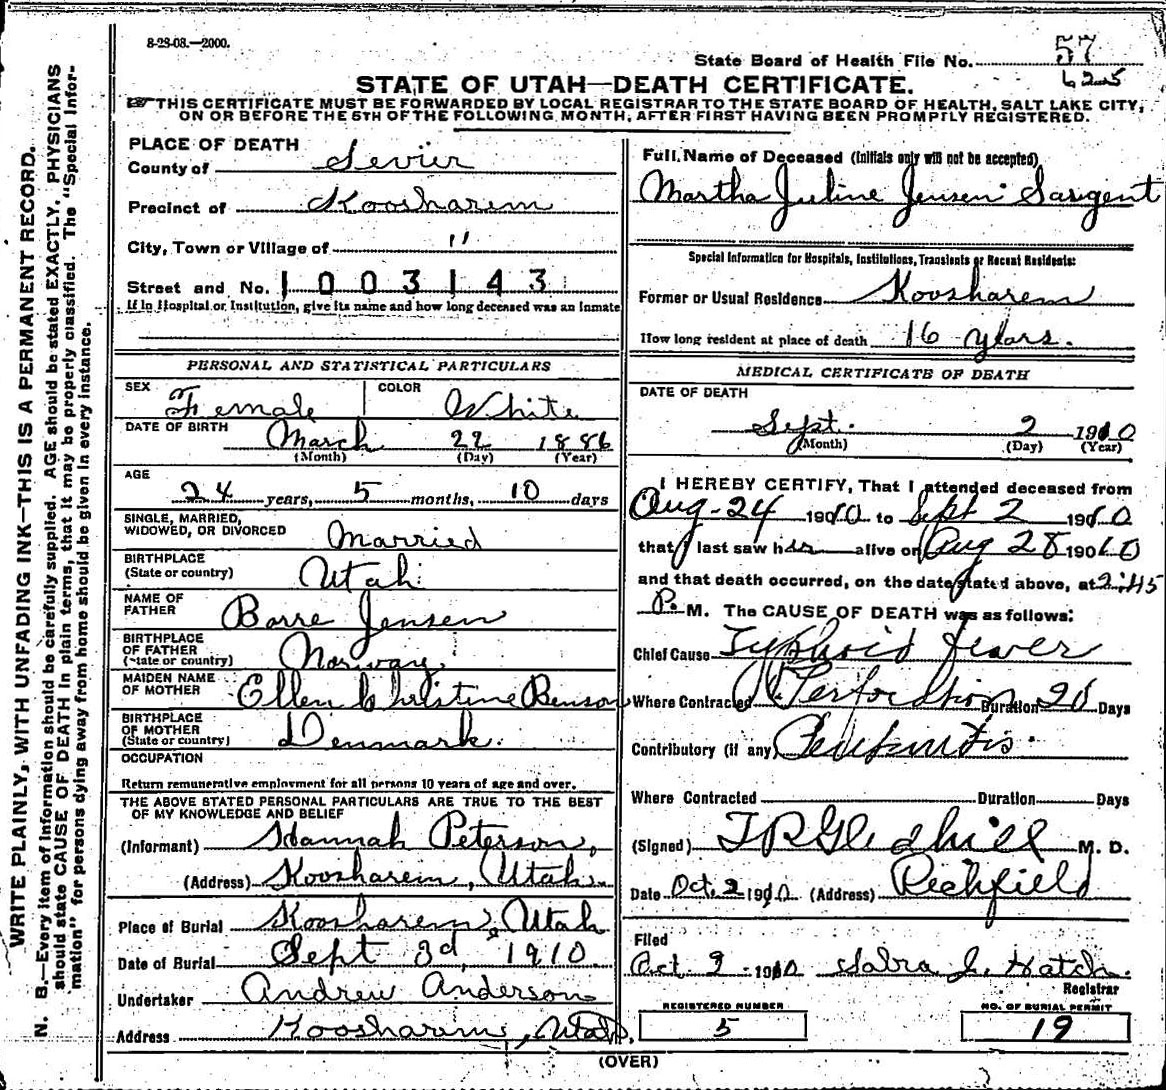 8-23-08.—2000.
State Board of Health File No. 57
625
STATE OF UTAH—DEATH CERTIFICATE.
THIS CERTIFICATE MUST BE FORWARDED BY LOCAL REGISTRAR TO THE STATE BOARD OF HEALTH, SALT LAKE CITY,
ON OR BEFORE THE 5TH OF THE FOLLOWING MONTH, AFTER FIRST HAVING BEEN PROMPTLY REGISTERED.
WRITE PLAINLY, WITH UNFADING INK—THIS IS A PERMANENT RECORD.
N. B.—Every item of information should be carefully supplied. AGE should be stated EXACTLY. PHYSICIANS
should state CAUSE OF DEATH in plain terms, that it may be properly classified. The "Special Infor-
mation" for persons dying away from home should be given in every instance.
PLACE OF DEATH
County of Sevier
Precinct of Koosharem
City, Town or Village of "
Street and No. 1003143
If in Hospital or Institution, give its name and how long deceased was an inmate
PERSONAL AND STATISTICAL PARTICULARS
SEX Female COLOR White
DATE OF BIRTH March 22 1886
(Month) (Day) (Year)
AGE
24 years, 5 months, 10 days
SINGLE, MARRIED,
WIDOWED, OR DIVORCED Married
BIRTHPLACE
(State or country) Utah
NAME OF
FATHER Barre Jensen
BIRTHPLACE
OF FATHER
(State or country) Norway
MAIDEN NAME
OF MOTHER Ellen Christine Benson
BIRTHPLACE
OF MOTHER
(State or country) Denmark.
OCCUPATION
Return remunerative employment for all persons 10 years of age and over.
THE ABOVE STATED PERSONAL PARTICULARS ARE TRUE TO THE BEST
OF MY KNOWLEDGE AND BELIEF
(Informant) Hannah Peterson,
(Address) Koosharem, Utah
Place of Burial Koosharem, Utah
Date of Burial Sept 3d, 1910
Undertaker Andrew Anderson
Address Koosharem, Utah.
Full Name of Deceased (Initials only will not be accepted)
Martha Juline Jensen Sargent
Special Information for Hospitals, Institutions, Transients or Recent Residents:
Former or Usual Residence Koosharem
How long resident at place of death 16 years.
MEDICAL CERTIFICATE OF DEATH
DATE OF DEATH
Sept. 2 1910
(Month) (Day) (Year)
I HEREBY CERTIFY, That I attended deceased from
Aug-24 1910 to Sept 2 1910
that I last saw her alive on Aug 28 1910
and that death occurred, on the date stated above, at 2:45
P. M. The CAUSE OF DEATH was as follows:
Chief Cause Typhoid fever
Where Contracted Perforation Duration 20 Days
Contributory (if any)
Where Contracted Duration Days
(Signed) T R Gledhill M. D.
Date Oct. 2 1910 (Address) Richfield
Filed
Oct. 2 1910 Sabra J. Hatch.
Registrar
REGISTERED NUMBER
5
NO. OF BURIAL PERMIT
19
(OVER)